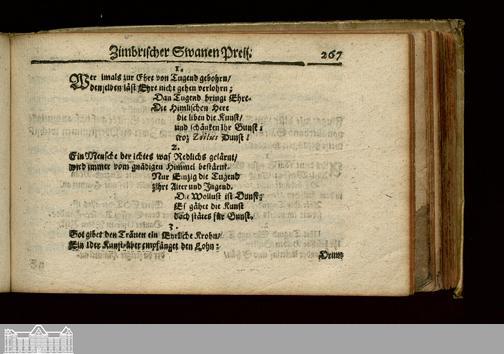 Zimbrischer Swanen Preiß. 267
1.
Wer imals zur Ehre von Tugend gebohrn/
denselben läst Ehre nicht gehen verlohrn;
Dan Tugend bringt Ehre.
Die Himlischen Here
die liben die Kunst/
und schänken Ihr Gunst;
troz Zoilus Dunst!
2.
Ein Mensche der ichtes was Redlichs gelärnt/
wird immer vom gnädigen Himmel bestärnt.
Nur Einzig die Tugend
Zihrt Alter und Jugend.
Die Wollust ist Dunst;
Es gähet die Kunst
doch stätes für Gunst.
3.
Got gibet den Träuen ein Ehrliche Krohn/
Ein Ider Kunst-liber empfänget den Lohn:
Drüm